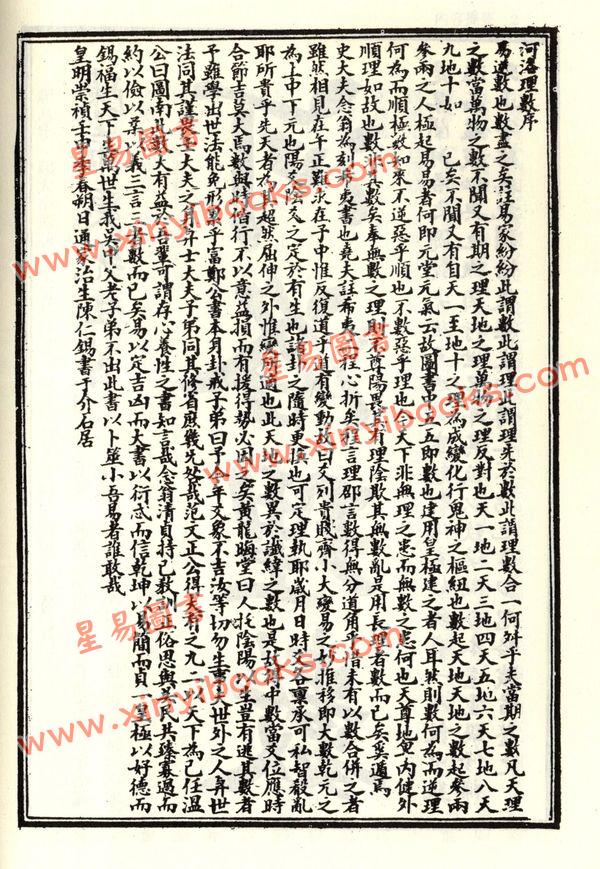 河洛理數序
易逆數也數盡之矣註易家紛紛此謂數此謂理此謂理先於數此謂理數合一何舛乎夫當期之數凡天理
之數當萬物之數不聞又有期之理天地之理萬物之理反對也天一地二天三地四天五地六天七地八天
九地十如 已矣不聞又有自天一至地十之理為成變化行鬼神之樞紐也數起天地天地之數起參兩
參兩之人極起易易者何即元堂元氣云故圖書中五五即數也建用皇極建之者人耳然則數何為而逆理
何為而順極數知來不逆惡乎順也不數惡乎理也今天下非無理之患而無數之患何也天尊地卑內健外
順理如故也數非其數矣奉無數之理則不尊陽畏 有理陰欺其無數亂是用長理者數而已矣奚遁焉
史大夫念翁為刻希夷書也堯夫註希夷而程心折矣程言理邵言數得無分道角乎昔未有以數合併之者
雖然相見在午正難求在子中惟反復道乎道有變動故曰爻列貴賤齊小大變易之妙推移即大數乾元之
為上中下元也陽爻陰爻之定於有生也諸卦之隨時更換也可定理執耶歲月日時各稟承可私智殺亂
耶所貴乎先天者為其超然屈伸之外惟變所適也此天地之數異於讖緯之數也是故卦中數當爻位應時
合節吉莫大焉數與時偕行不以意益損而有援得勢必因之矣黃龍晦堂曰人托陰陽以生豈有逃其數者
乎雖學出世法能免形累乎富鄭公書本身卦戒子弟曰予今年爻象不吉汝等切勿生事夫世外之人與世
法同其謹畏士大夫之身與士大夫子弟同其修省庶幾先處哉范文正公得大有之九二以天下為己任溫
公曰圖南此數大有益於吾輩可謂存心養性之書知言哉念翁清貞持己教訓正俗恩與若民共臻寡過而
約以儉以柔以義三言三者數而已矣易以定吉凶而大書以衍忒而信乾坤以易簡而貞一皇極以好德而
錫福生天下生萬世生我吳中父老子弟不出此書以卜筮小吾易者誰敢哉
皇明崇禎壬申季春朔日通家治生陳仁錫書于介石居
星易圖書
www.xinyibooks.com
星易圖書
www.xinyibooks.com
星易圖書
www.xinyibooks.com